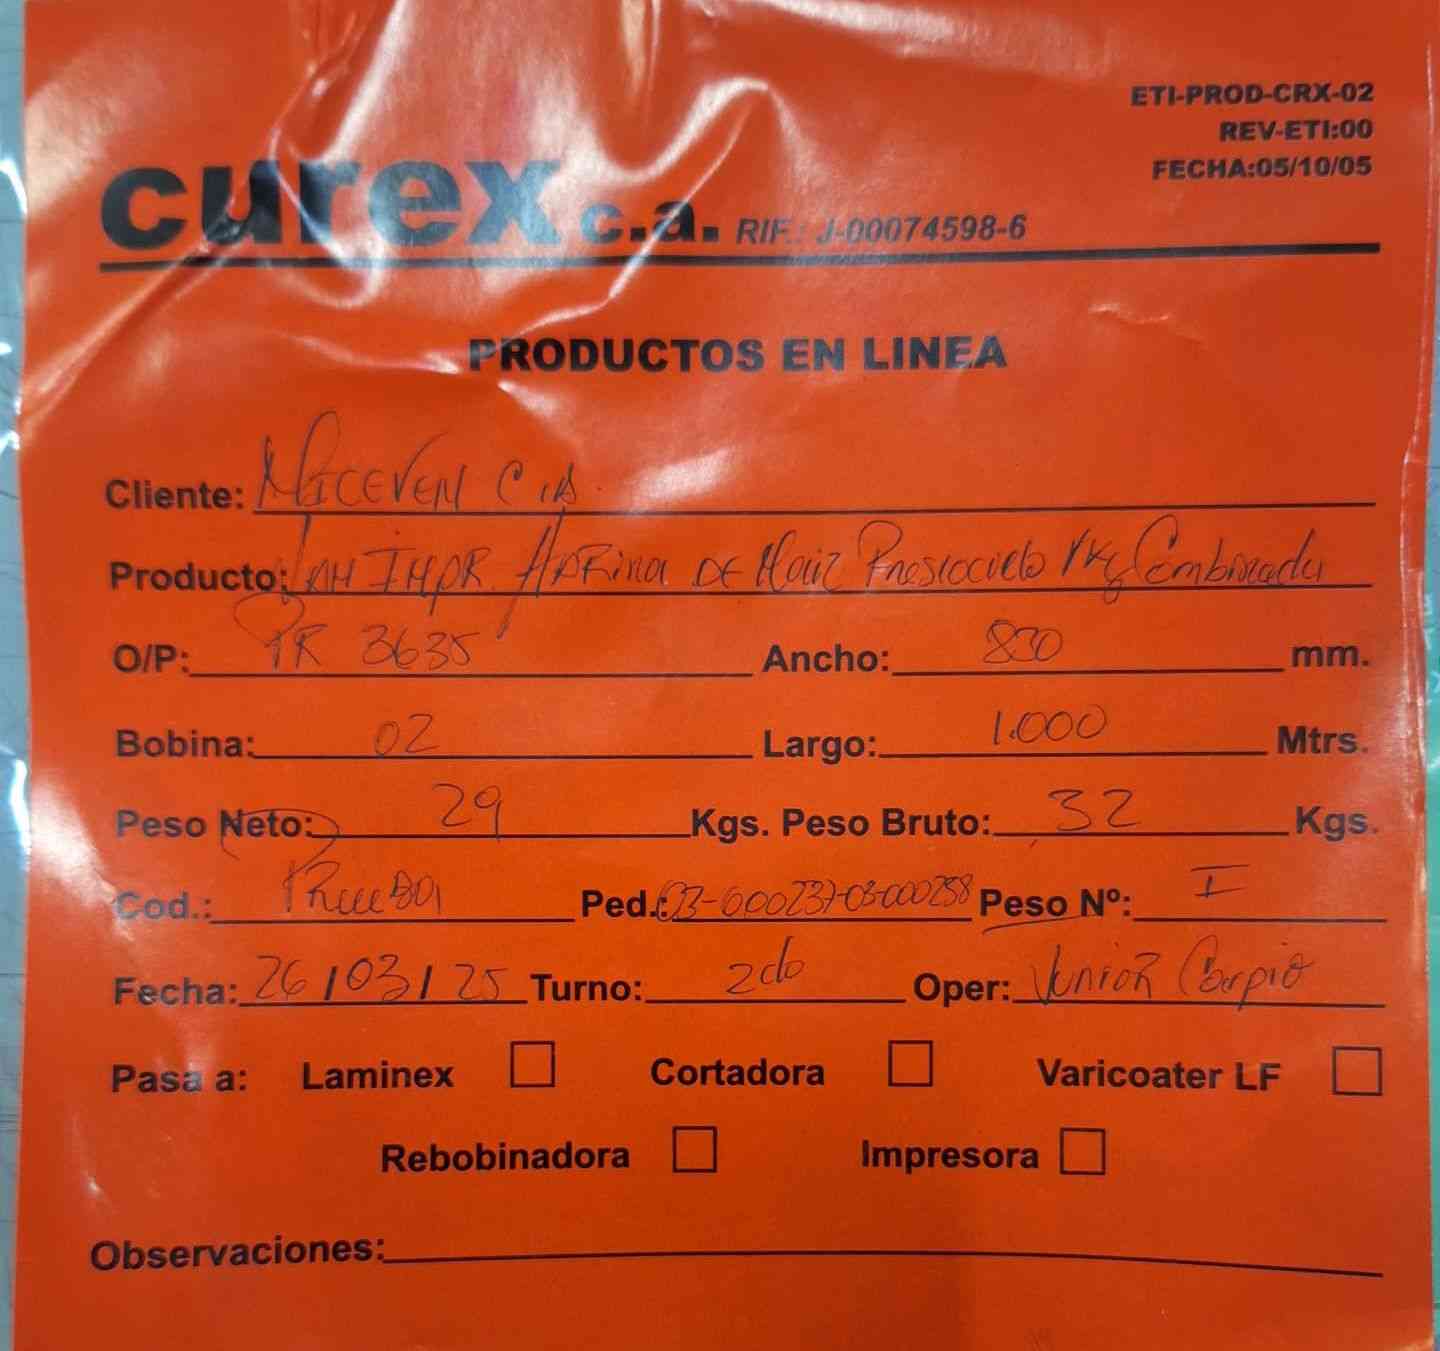 ETI-PROD-CRX-02
REV-ETI:00
FECHA:05/10/05
curex c.a. RIF.: J-00074598-6
PRODUCTOS EN LINEA
Cliente: C.A.
Producto: Lam Impr. Harina DE Maiz Precocida 1kg Combinada
O/P: PR 3635 Ancho: 830 mm.
Bobina: 02 Largo: 1.000 Mtrs.
Peso Neto: 29 Kgs. Peso Bruto: 32 Kgs.
Cod.: Prueba Ped.: Peso Nº: I
Fecha: 26/03/25 Turno: 2do Oper: Junior Carpio
Pasa a: Laminex Cortadora Varicoater LF
Rebobinadora Impresora
Observaciones: